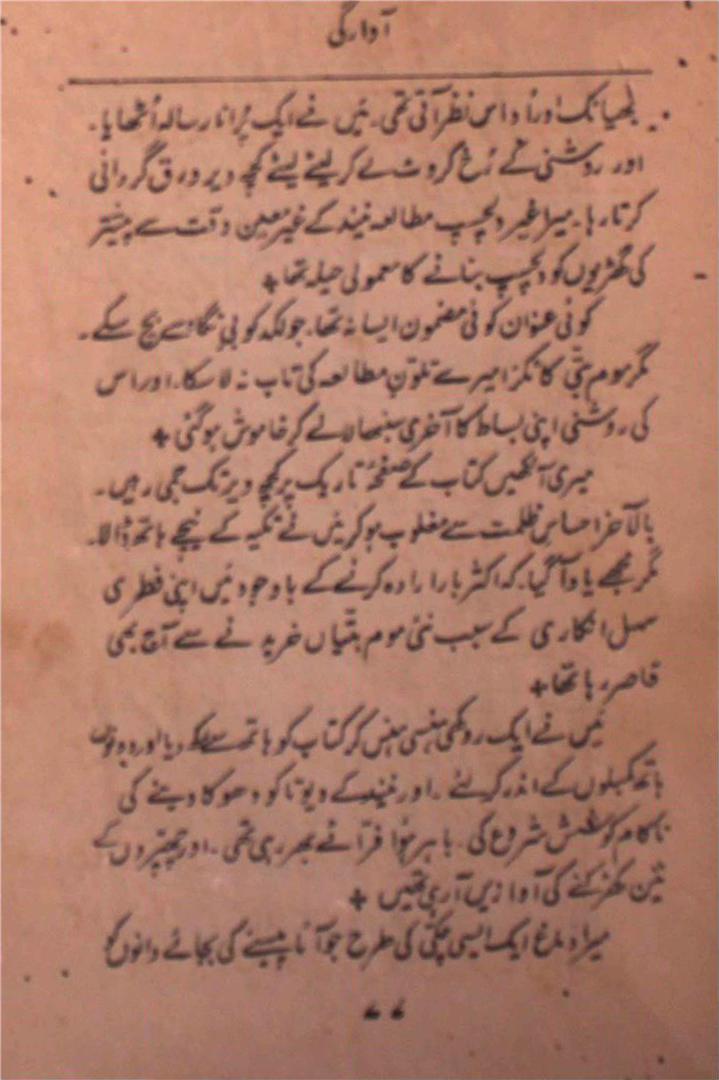 آوارگی
بھیانک اور اُداس نظر آتی تھی۔ مَیں نے ایک پُرانا رسالہ اُٹھایا۔
اور روشنی کے رُخ کروٹ لے کر لیٹے لیٹے کچھ دیر ورق گردانی
کرتا رہا۔ میرا غیر دلچسپ مطالعہ نیند کے غیر معین وقت سے پیشتر
کی گھڑیوں کو دلچسپ بنانے کا معمولی حیلہ تھا +
کوئی عنوان کوئی مضمون ایسا نہ تھا۔ جو لکد کوبیِ نگاہ سے بچ سکے۔
مگر موم بتّی کا ٹکڑا میرے تلوّنِ مطالعہ کی تاب نہ لا سکا۔ اور اس
کی روشنی اپنی بساط کا آخری سنبھالا لے کر خاموش ہوگئی +
میری آنکھیں کتاب کے صفحۂ تاریک پر کچھ دیر تک جمی رہیں۔
بالآخر احساسِ ظلمت سے مغلوب ہو کر مَیں نے تکیہ کے نیچے ہاتھ ڈالا۔
مگر مجھے یاد آ گیا۔ کہ اکثر بار ارادہ کرنے کے باوجود مَیں اپنی فطری
سہل انکاری کے سبب نئی موم بتّیاں خریدنے سے آج بھی
قاصر رہا تھا +
مَیں نے ایک روکھی ہنسی ہنس کر کتاب کو ہاتھ سے رکھ دیا اور دونوں
ہاتھ کمبلوں کے اندر کر لئے۔ اور نیند کے دیوتا کو دھوکا دینے کی
ناکام کوشش شروع کی۔ باہر ہوا فرّاٹے بھر رہی تھی۔ اور چھپّروں کے
ٹین کھڑکنے کی آوازیں آ رہی تھیں +
میرا دماغ ایک ایسی چکّی کی طرح جو آٹا پیسنے کی بجائے دانوں کو
۷۷